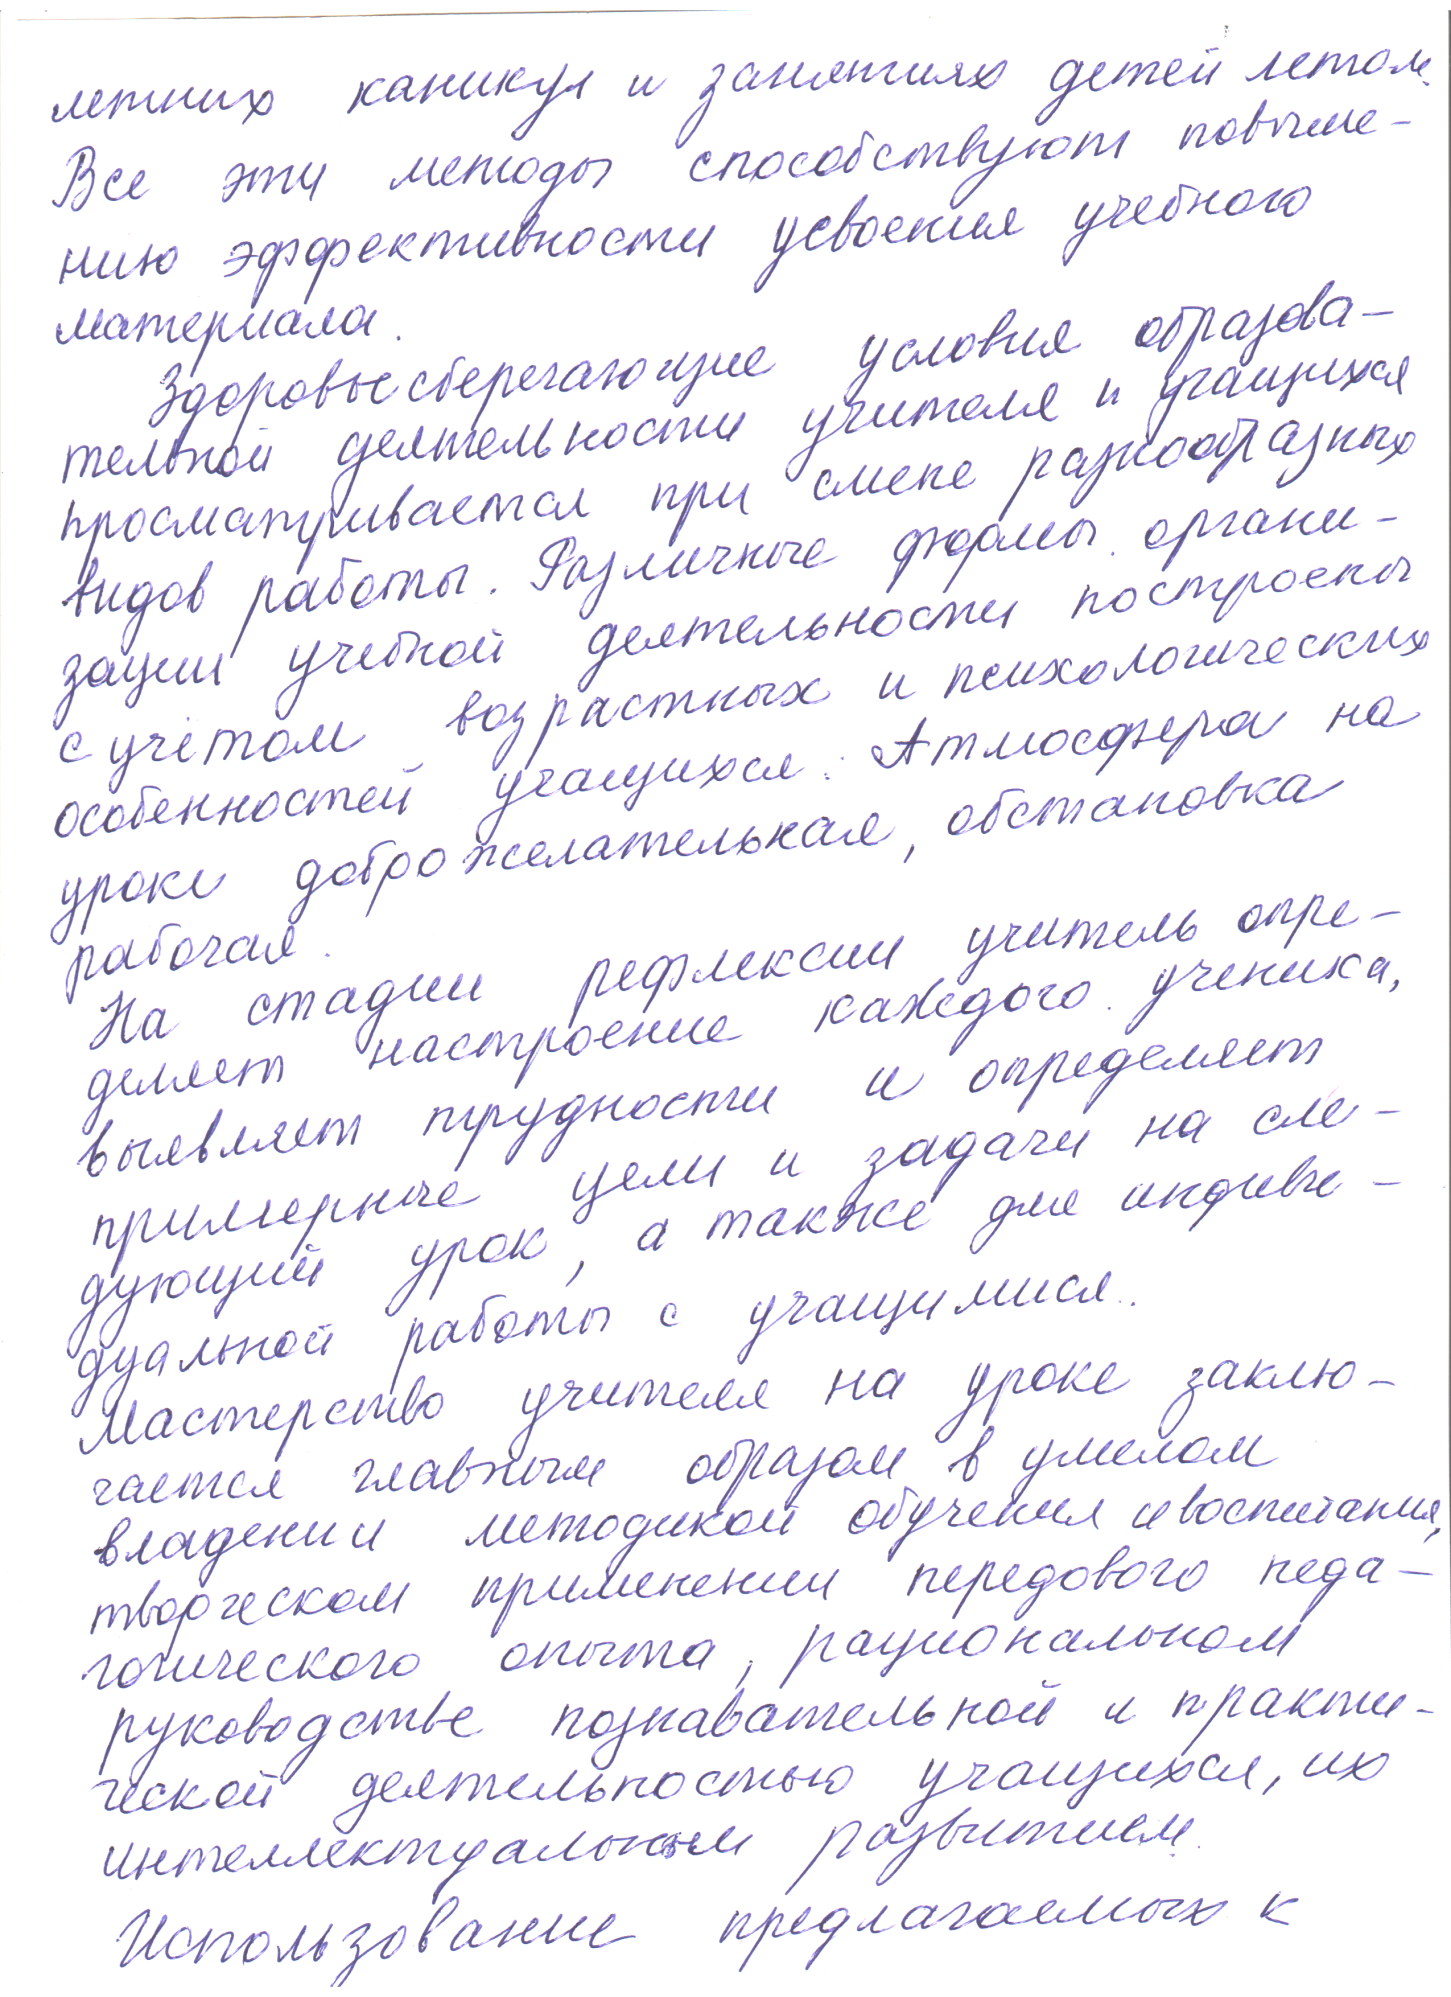 летних каникул и занятиях детей летом.
Все эти методы способствуют повыше-
нию эффективности усвоения учебного
материала.
Здоровьесберегающие условия образова-
тельной деятельности учителя и учащихся
просматривается при смене разнообразных
видов работы. Различные формы органи-
зации учебной деятельности построены
с учётом возрастных и психологических
особенностей учащихся. Атмосфера на
уроке доброжелательная, обстановка
рабочая.
На стадии рефлексии учитель опре-
деляет настроение каждого ученика,
выявляет трудности и определяет
примерные цели и задачи на сле-
дующий урок, а также для индиви-
дуальной работы с учащимися.
Мастерство учителя на уроке заклю-
чается главным образом в умелом
владении методикой обучения и воспитания,
творческом применении передового педа-
гогического опыта, рациональном
руководстве познавательной и практи-
ческой деятельностью учащихся, их
интеллектуальным развитием.
Использование предлагаемых к